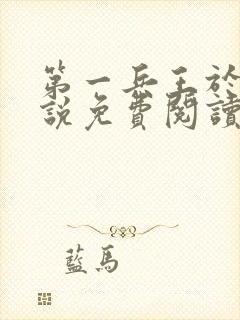 第一兵王於
說免費閱讀
藍馬